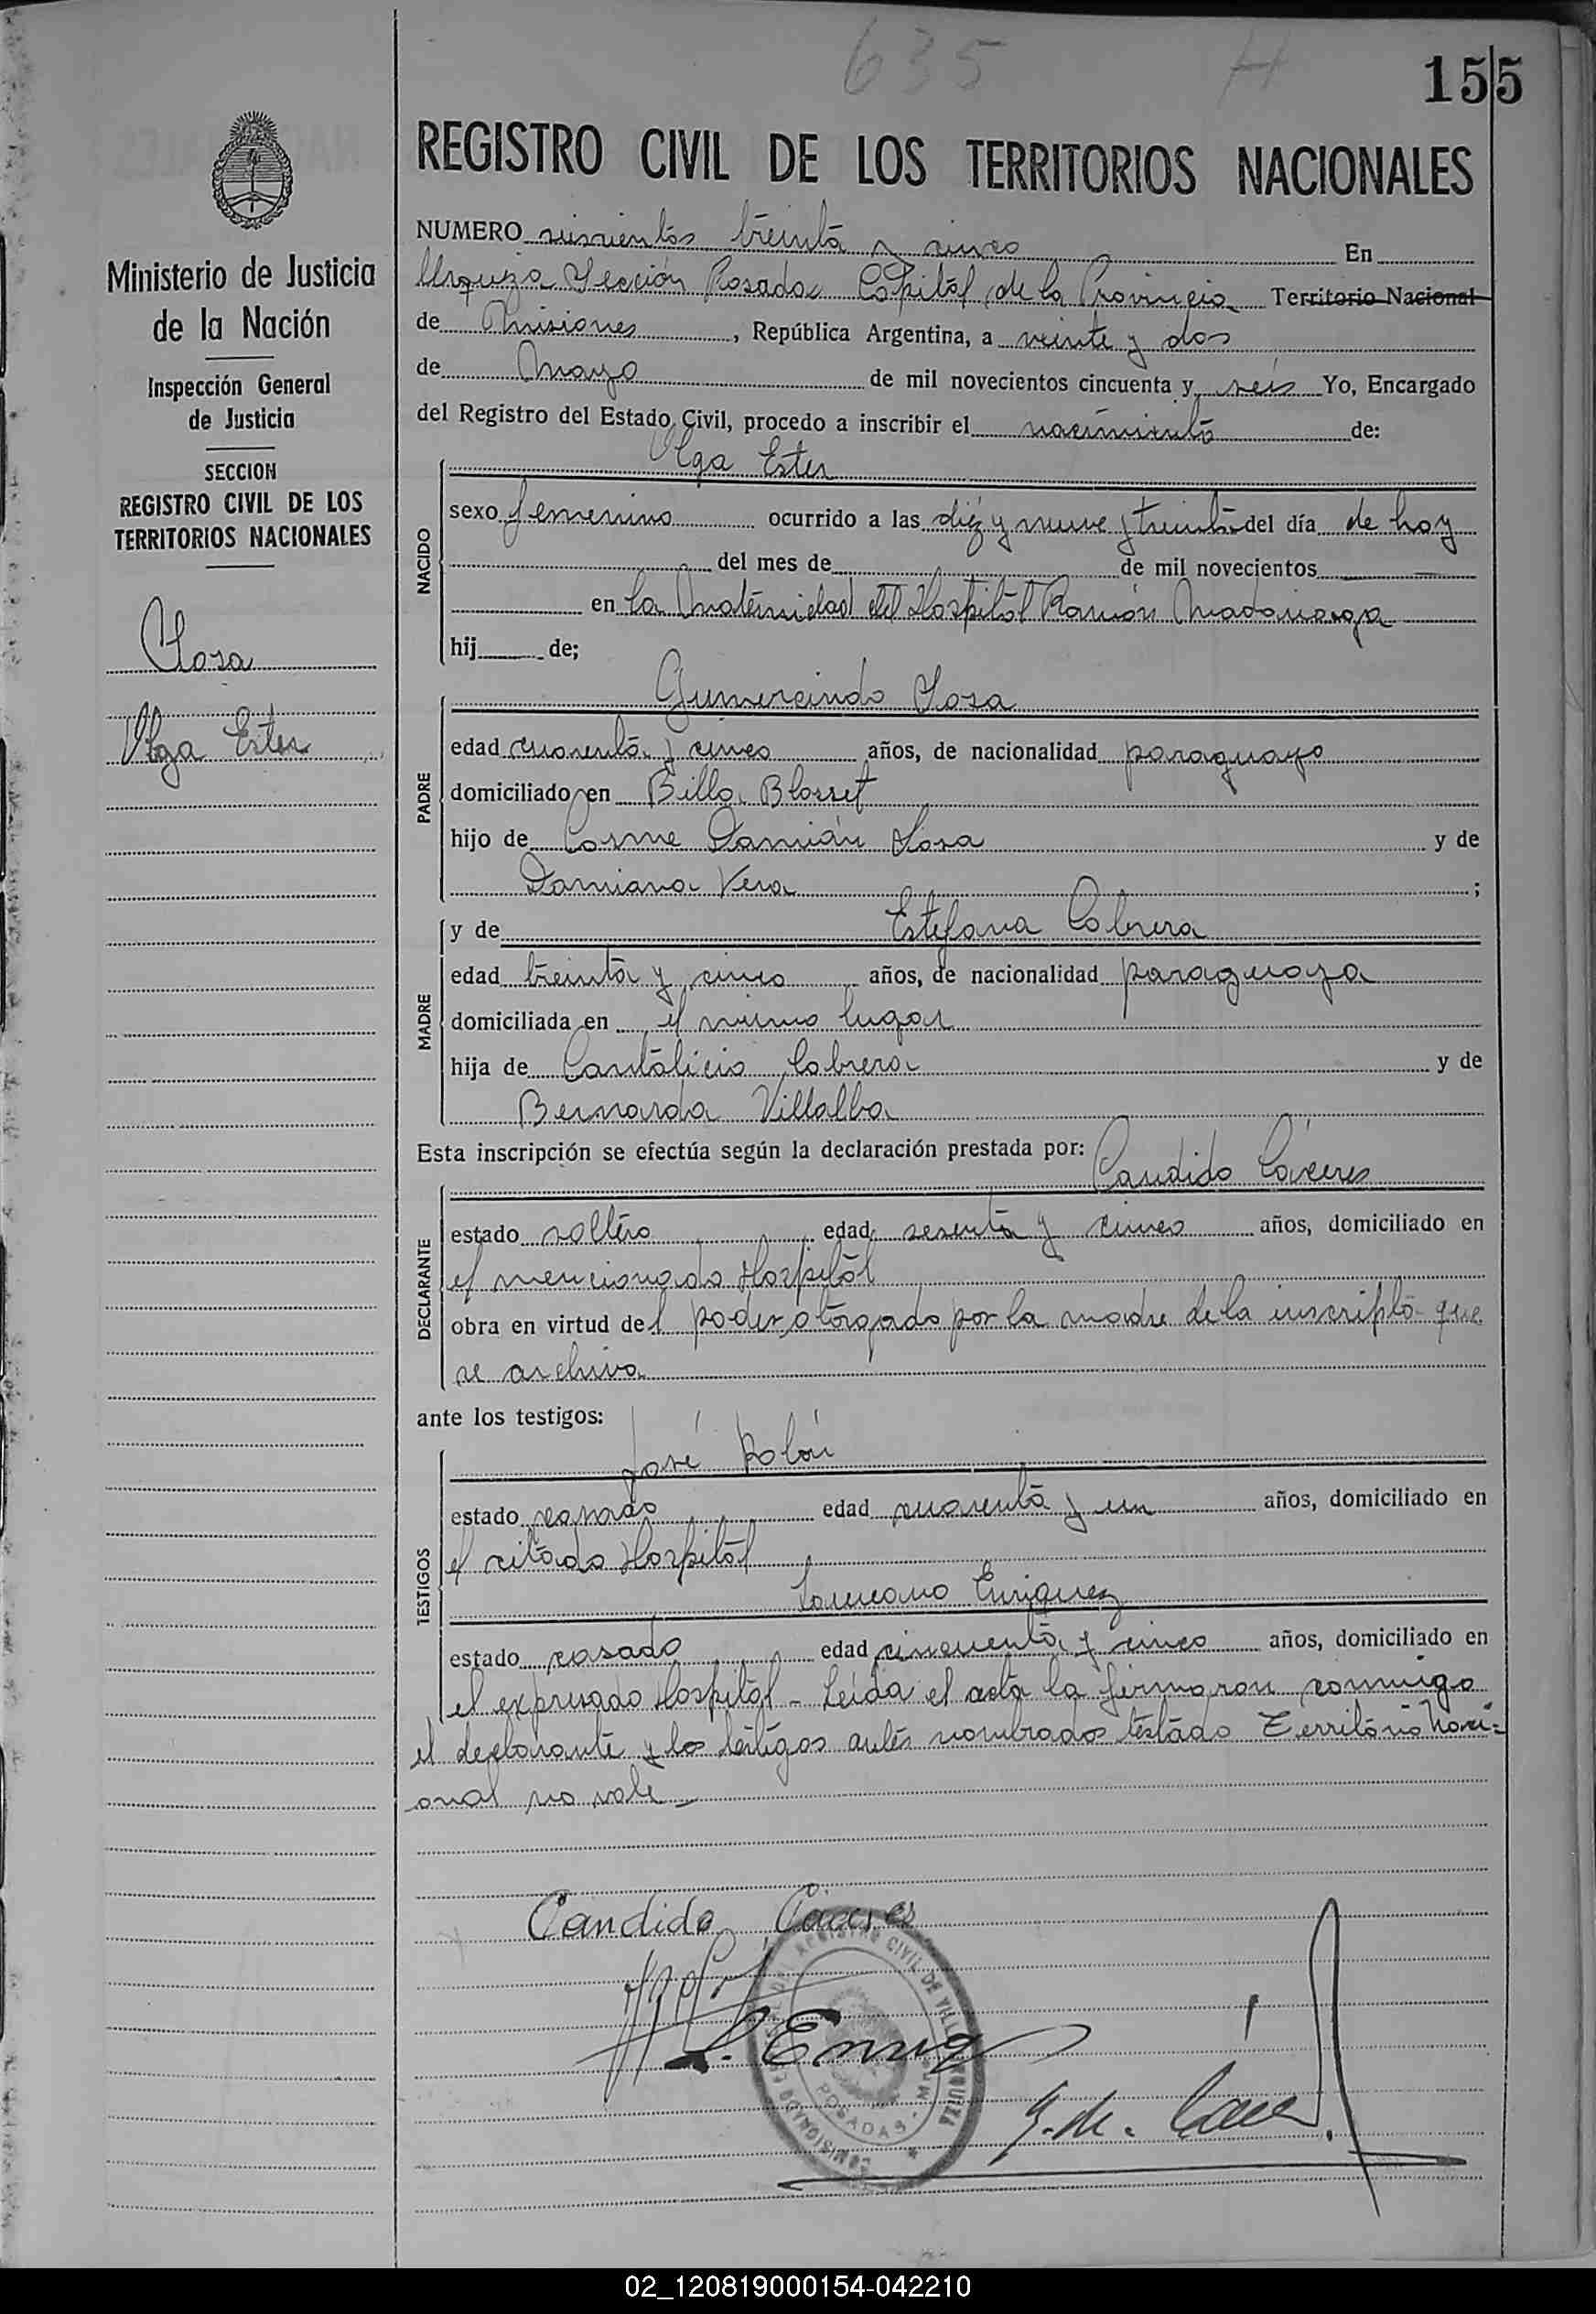 635 H
155
REGISTRO CIVIL DE LOS TERRITORIOS NACIONALES
Ministerio de Justicia
de la Nación
Inspección General
de Justicia
SECCION
REGISTRO CIVIL DE LOS
TERRITORIOS NACIONALES
Sosa
Olga Ester
NUMERO seiscientos treinta y cinco En
Urquiza Sección Posadas Capital de la Provincia Territorio Nacional
de Misiones, República Argentina, a veinte y dos
de Mayo de mil novecientos cincuenta y seis Yo, Encargado
del Registro del Estado Civil, procedo a inscribir el nacimiento de:
Olga Ester
NACIDO
sexo femenino ocurrido a las diez y nueve y treinta del día de hoy
del mes de de mil novecientos
en la Maternidad del Hospital Ramón Madariaga
hij de;
Gumercindo Sosa
PADRE
edad cuarenta y cinco años, de nacionalidad paraguayo
domiciliado en Billa Blosset
hijo de Cosme Damián Sosa y de
Damiana Vera ;
y de Estefana Cabrera
MADRE
edad treinta y cinco años, de nacionalidad paraguaya
domiciliada en el mismo lugar
hija de Cantalicio Cabrera y de
Bernarda Villalba
Esta inscripción se efectúa según la declaración prestada por:
Candido Cáceres
DECLARANTE
estado soltero edad sesenta y cinco años, domiciliado en
el mencionado Hospital
obra en virtud del poder otorgado por la madre de la inscripta que
se archiva
ante los testigos:
José Rolón
TESTIGOS
estado casado edad cuarenta y un años, domiciliado en
el citado Hospital
Laureano Enriquez
estado casado edad cincuenta y cinco años, domiciliado en
el expresado Hospital - Leida el acta la firmaron conmigo
el declarante y los testigos antes nombrados testado Territorio Naci=
onal no vale -
Candido Cáceres
L. Enriq
REGISTRO CIVIL DE VILLA URQUIZA
POSADAS
02_120819000154-042210